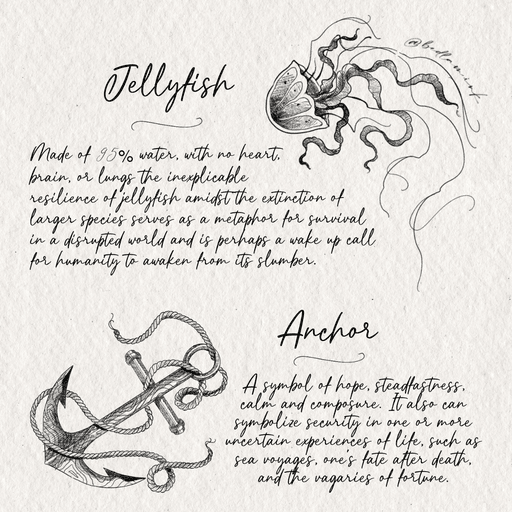 Jellyfish
Made of 95% water, with no heart,
brain, or lungs the inexplicable
resilience of jellyfish amidst the extinction of
larger species serves as a metaphor for survival
in a disrupted world and is perhaps a wake up call
for humanity to awaken from its slumber.
Anchor
A symbol of hope, steadfastness,
calm and composure. It also can
symbolize security in one or more
uncertain experiences of life, such as
sea voyages, one's fate after death,
and the vagaries of fortune.